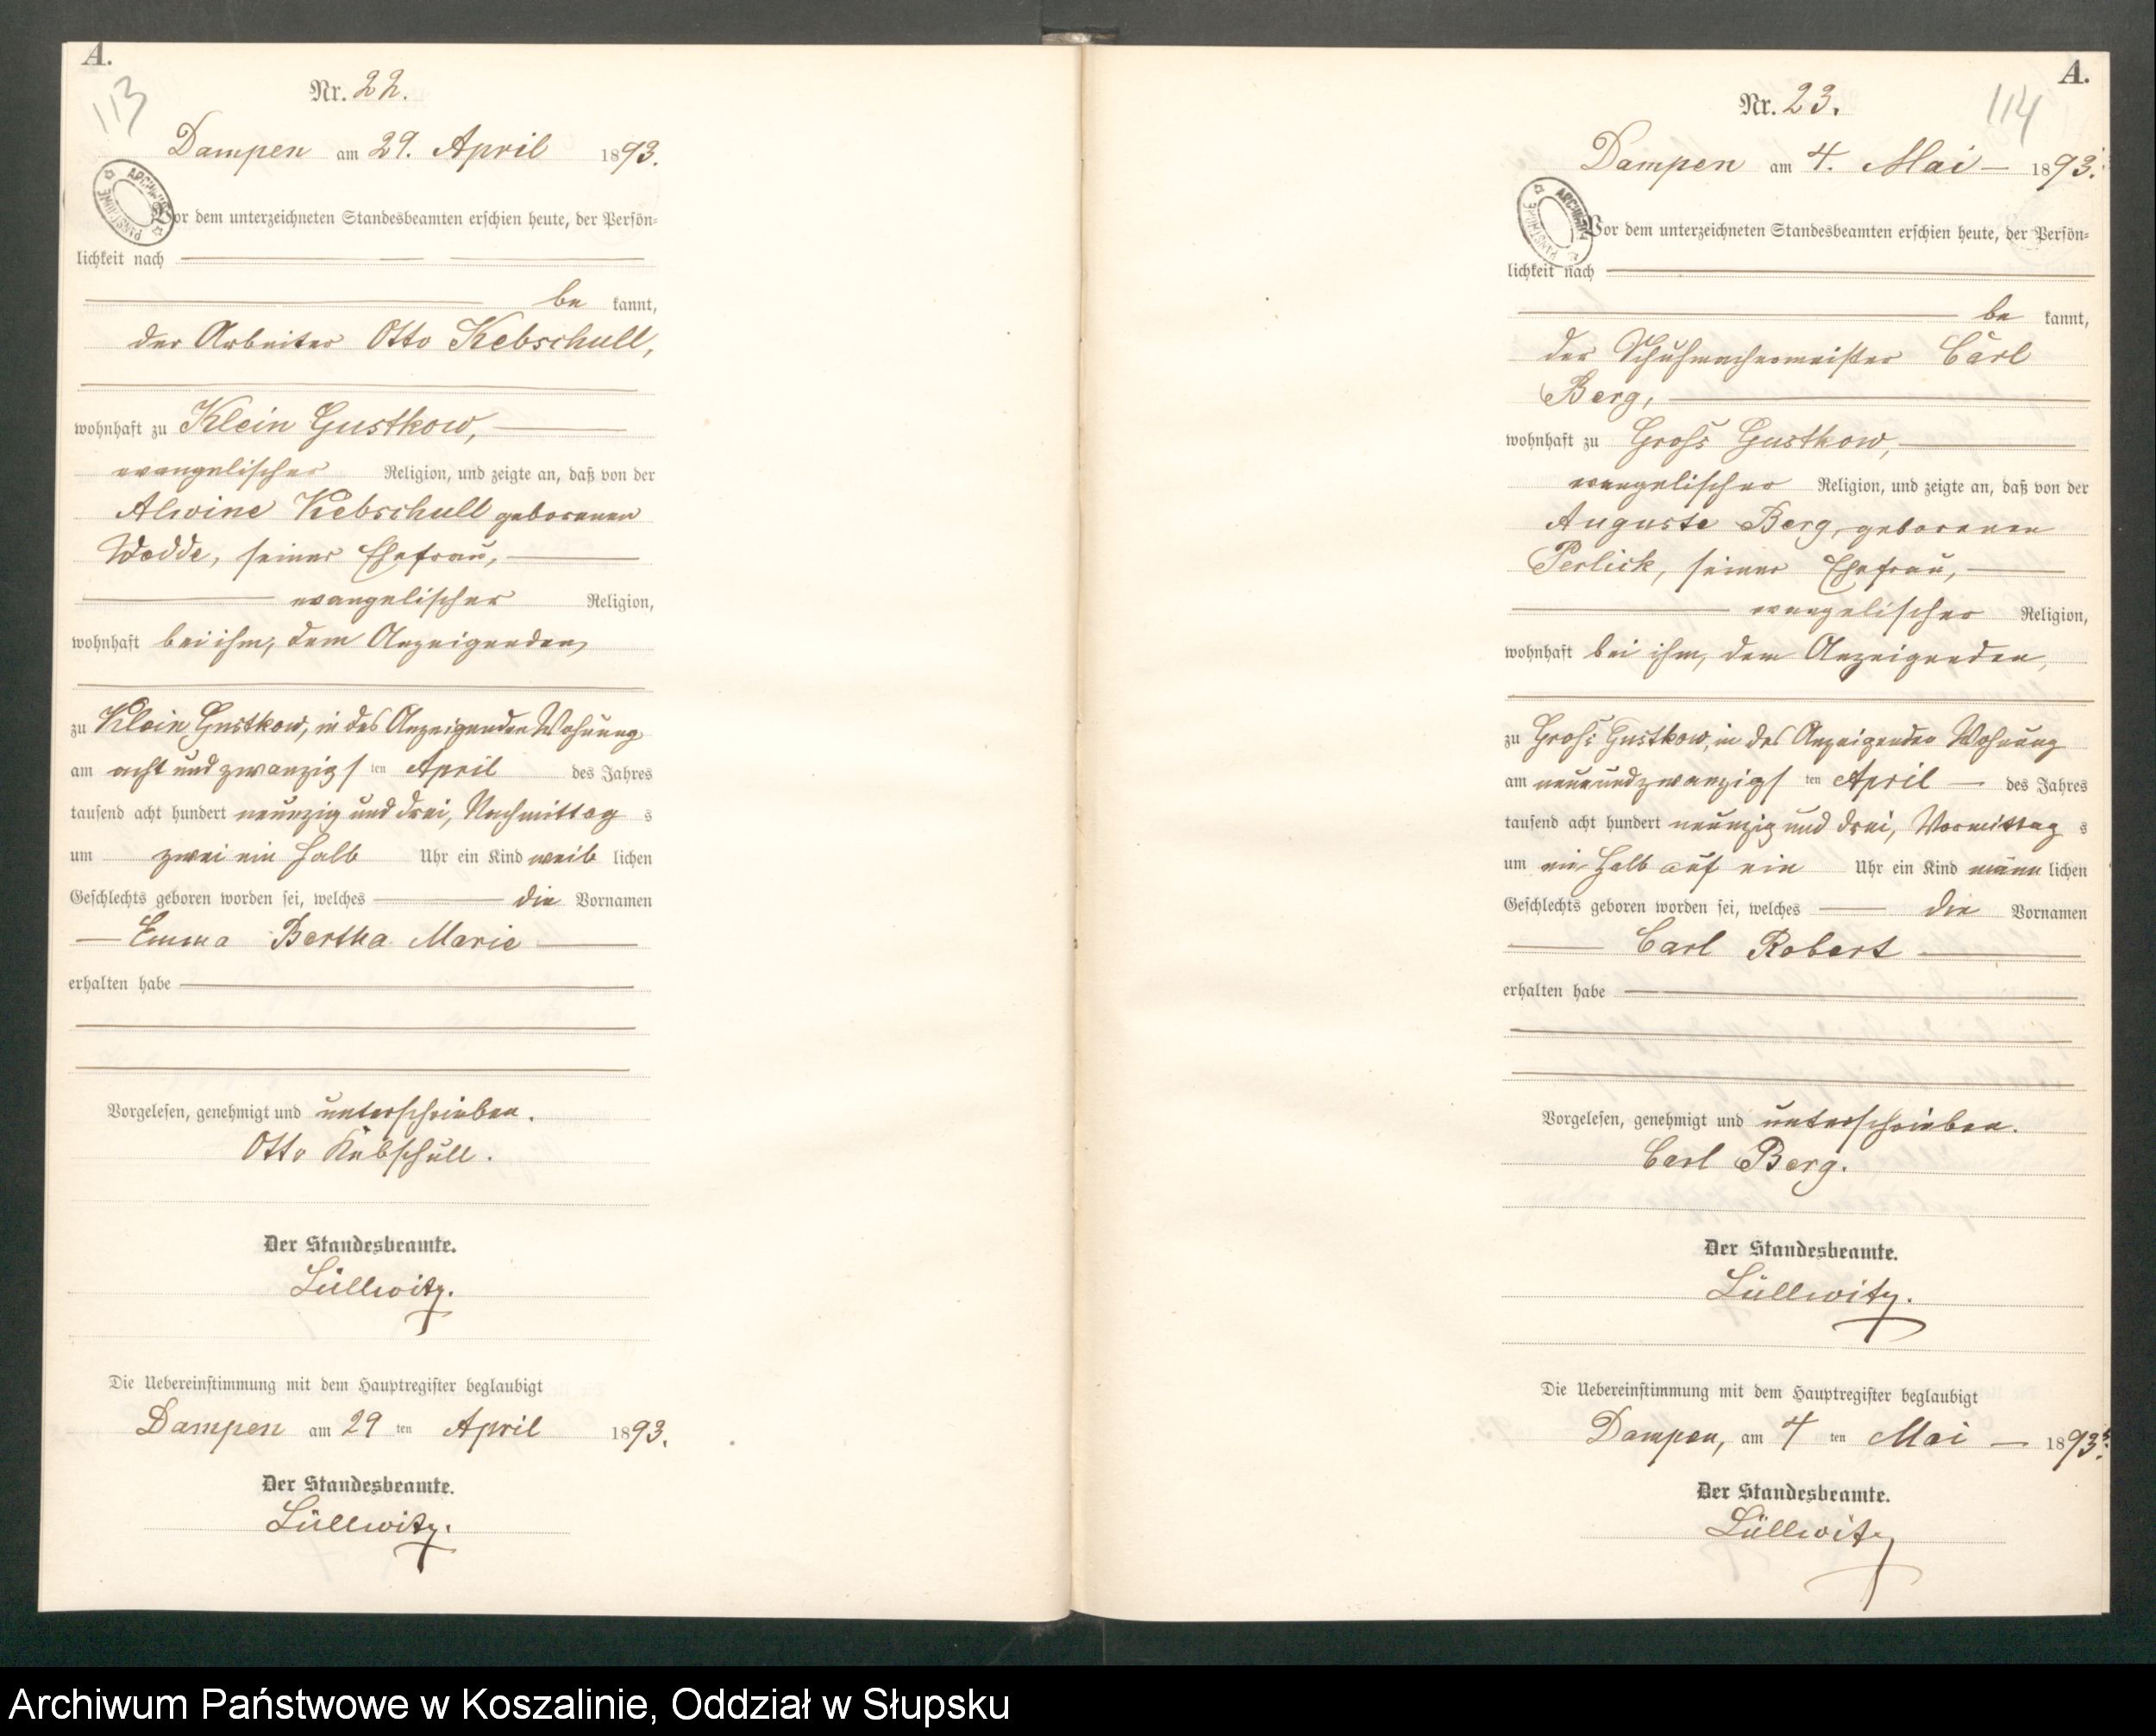 A.
113
Nr. 22.
Dampen am 29. April 1893.
ARCHIWUM PAŃSTWOWE
Vor dem unterzeichneten Standesbeamten erschien heute, der Persön-
lichkeit nach
be kannt,
der Arbeiter Otto Kebschull,
wohnhaft zu Klein Gustkow,
evangelischer Religion, und zeigte an, daß von der
Alwine Kebschull geborenen
Wodde, seiner Ehefrau,
evangelischer Religion,
wohnhaft bei ihm, dem Anzeigenden,
zu Klein Gustkow, in des Anzeigenden Wohnung
am acht und zwanzigsten April des Jahres
tausend acht hundert neunzig und drei, Nachmittags
um zwei ein halb Uhr ein Kind weiblichen
Geschlechts geboren worden sei, welches die Vornamen
Emma Bertha Marie
erhalten habe
Vorgelesen, genehmigt und unterschrieben.
Otto Kebschull.
Der Standesbeamte.
Lüllwitz.
Die Uebereinstimmung mit dem Hauptregister beglaubigt
Dampen am 29 ten April 1893.
Der Standesbeamte.
Lüllwitz.
A.
114
Nr. 23.
Dampen am 4. Mai 1893.
ARCHIWUM PAŃSTWOWE
Vor dem unterzeichneten Standesbeamten erschien heute, der Persön-
lichkeit nach
be kannt,
der Schuhmachermeister Carl
Berg,
wohnhaft zu Groß Gustkow,
evangelischer Religion, und zeigte an, daß von der
Auguste Berg, geborenen
Perlick, seiner Ehefrau,
evangelischer Religion,
wohnhaft bei ihm, dem Anzeigenden,
zu Groß Gustkow, in des Anzeigenden Wohnung
am neunundzwanzigsten April des Jahres
tausend acht hundert neunzig und drei, Vormittags
um ein halb auf ein Uhr ein Kind männlichen
Geschlechts geboren worden sei, welches die Vornamen
Carl Robert
erhalten habe
Vorgelesen, genehmigt und unterschrieben.
Carl Berg.
Der Standesbeamte.
Lüllwitz.
Die Uebereinstimmung mit dem Hauptregister beglaubigt
Dampen, am 4 ten Mai 1893.
Der Standesbeamte.
Lüllwitz
Archiwum Państwowe w Koszalinie, Oddział w Słupsku